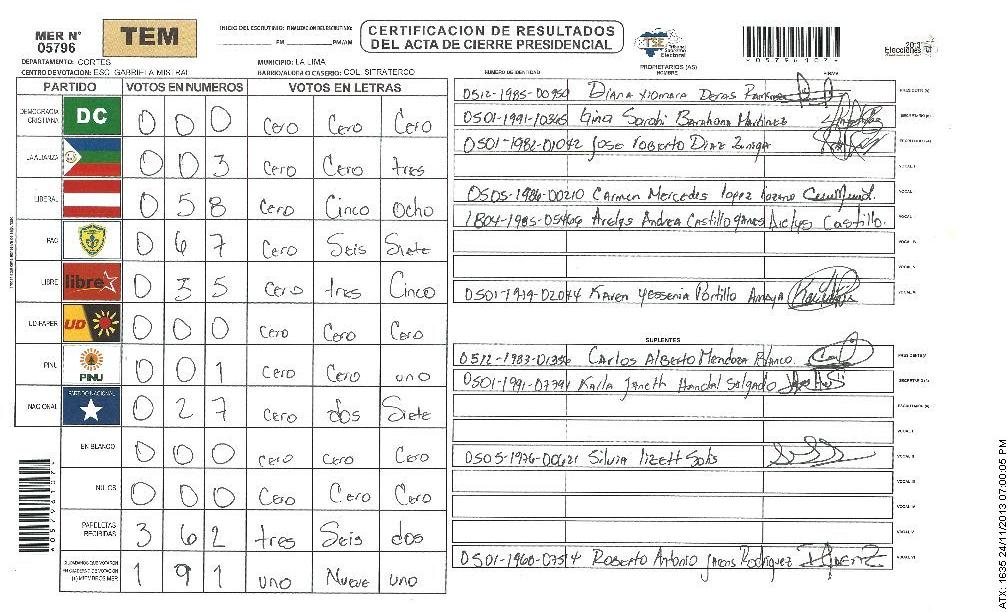 MER N° 05796
TEM
INICIO DEL ESCRUTINIO: FINALIZACION DEL ESCRUTINIO:
PM PM/AM
CERTIFICACION DE RESULTADOS
DEL ACTA DE CIERRE PRESIDENCIAL
TSE Tribunal Supremo Electoral
Elecciones
DEPARTAMENTO: CORTES
MUNICIPIO: LA LIMA
CENTRO DE VOTACION: ESC. GABRIELA MISTRAL
BARRIO/ALDEA O CASERIO: COL. SITRATERCO
NUMERO DE IDENTIDAD
PROPIETARIOS (AS)
NOMBRE
FIRMA
PARTIDO VOTOS EN NUMEROS VOTOS EN LETRAS
DEMOCRACIA CRISTIANA DC 0 0 0 Cero Cero Cero
LA ALIANZA 0 0 3 Cero Cero tres
LIBERAL 0 5 8 Cero Cinco Ocho
PAC 0 6 7 Cero Seis Siete
LIBRE libre 0 3 5 Cero tres Cinco
UD-FAPER UD 0 0 0 Cero Cero Cero
PINU PINU 0 0 1 Cero Cero uno
NACIONAL PARTIDO NACIONAL 0 2 7 Cero dos Siete
EN BLANCO 0 0 0 Cero Cero Cero
NULOS 0 0 0 Cero Cero Cero
PAPELETAS RECIBIDAS 3 6 2 tres Seis dos
CIUDADANOS QUE VOTARON EN CUADERNO DE VOTACION (+) MIEMBROS MER 1 9 1 uno Nueve uno
0512-1985-00959 Diana Xiomara Deras PRESIDENTE (A)
0501-1991-10365 Gina Sarahi Barahona Martinez SECRETARIO (A)
0501-1982-01042 Jose Roberto Diaz Zuniga ESCRUTADOR (A)
VOCAL I
0505-1986-00210 Carmen Mercedes lopez VOCAL
1804-1985-05466 Arelys Andrea Castillo Arelys Castillo. VOCAL
VOCAL IV
VOCAL V
0501-1979-02044 Karen Yessenia Portillo Amaya VOCAL VI
SUPLENTES
0512-1983-01356 Carlos Alberto Mendoza Blanco. PRESIDENTE (A)
0501-1991-07791 Karla Janeth Handal Salgado SECRETARIO (A)
ESCRUTADOR (A)
VOCAL I
0505-1976-00621 Silvia lizett Solis VOCAL II
VOCAL III
VOCAL IV
VOCAL V
0501-1960-07514 Roberto Antonio Rodriguez VOCAL VI
ATX: 1635 24/11/2013 07:00:05 PM